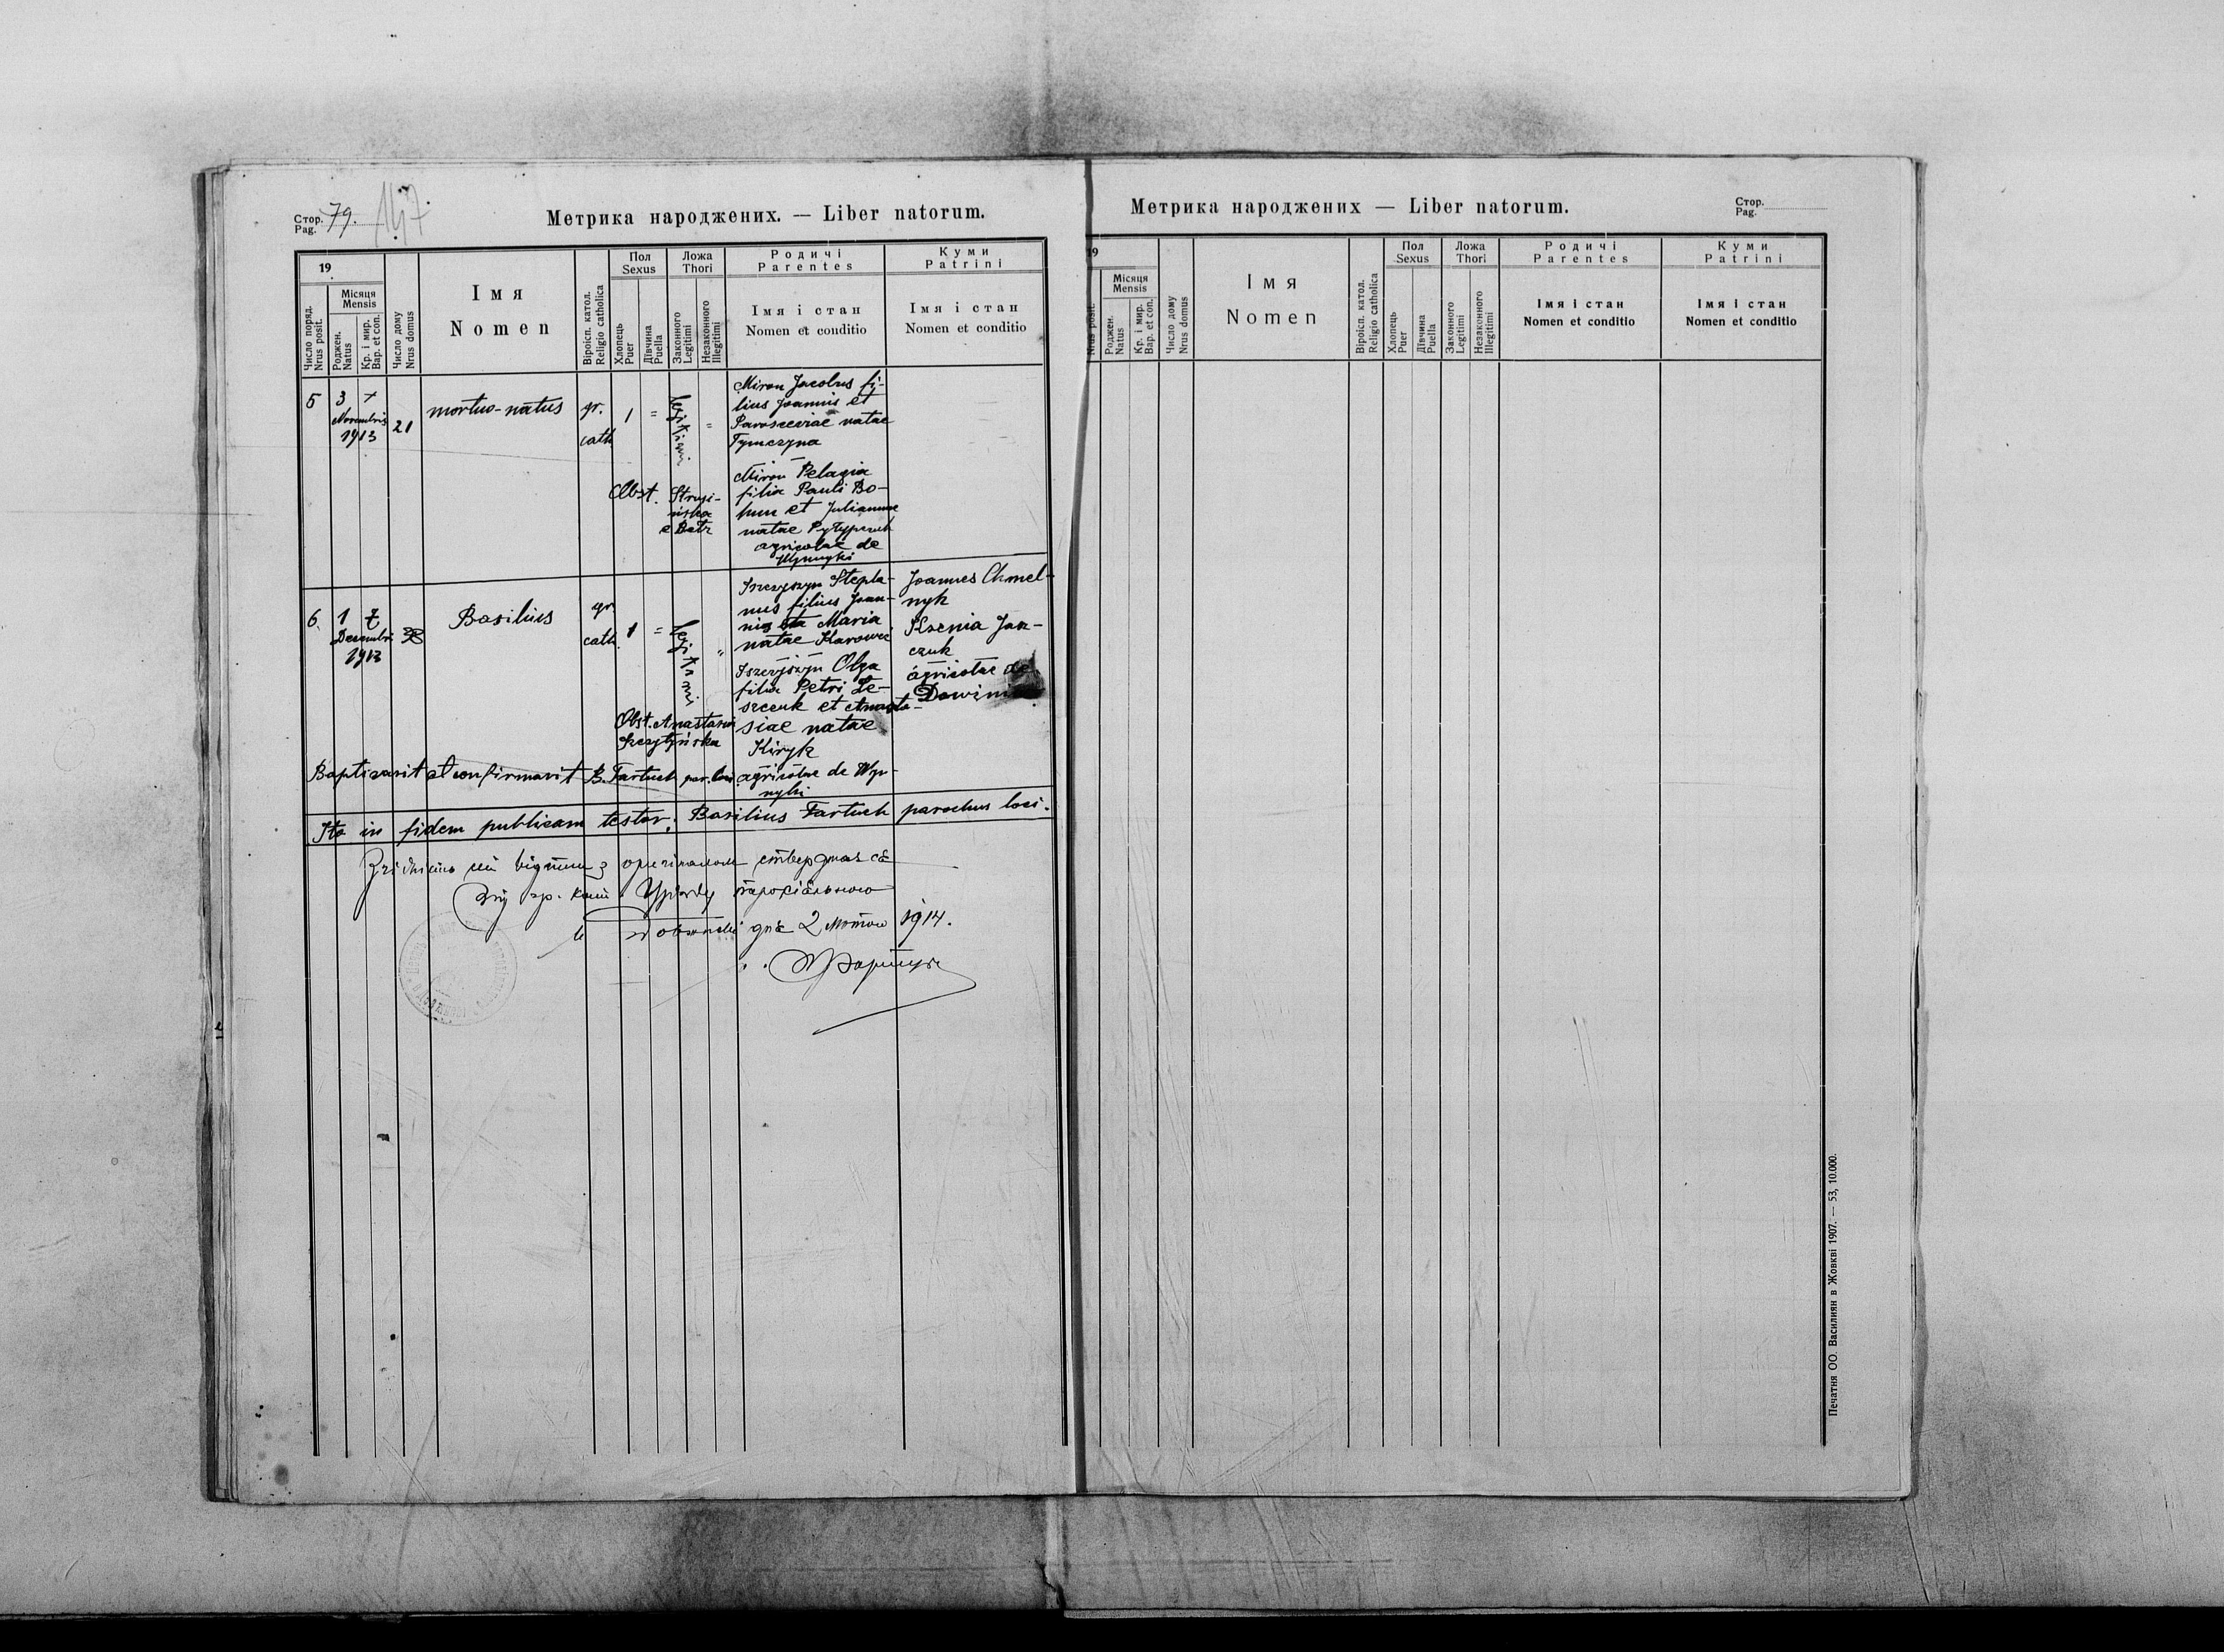 Стор. 79. 147
Pag.
Метрика народжених. — Liber natorum.
19
Число поряд.
Nrus posit.
Місяця
Mensis
Роджен.
Natus
Кр. і мир.
Bap. et con.
Число дому
Nrus domus
Імя
Nomen
Віроісп. катол.
Religio catholica
Пол
Sexus
Хлопець
Puer
Дівчина
Puella
Ложа
Thori
Законного
Legitimi
Незаконного
Illegitimi
Родичі
Parentes
Імя і стан
Nomen et conditio
Куми
Patrini
Імя і стан
Nomen et conditio
5 3 +
Novembris
1913
21
mortuo-natus
gr.
cath
1 =
legitimi
=
Miron Jacobus fi-
lius Joannis et
Parasceviae natae
Tymczyna
Miron Pelagia
filia Pauli Bo-
hun et Julianne
natae
agricolae de
Wynnyki
Obst.
6. 1 7
Decembri
1913
Basilius
gr
cath.
1 =
legitimi
"
Stepha-
nus filius Joan-
nis Maria
natae
Olga
filia Petri Le-
szczuk et Anasta-
siae natae
Kiryk
agricolae de Wyn-
nyki
Joannes Chmel-
nyk
Ksenia Jan-
czuk
agricolae de
Obst. Anastasia
Baptisavit et confirmavit B. Fartuch par. loci
Ita in fidem publicam testor: Basilius Fartuch parochus loci.
з оригіналом стверджає ся
гр. кат. Уряду парохіяльного
дня 2 лютого 1914.
Фартух
Метрика народжених — Liber natorum.
Стор.
Pag.
19
Nrus posit.
Місяця
Mensis
Роджен.
Natus
Кр. і мир.
Bap. et con.
Число дому
Nrus domus
Імя
Nomen
Віроісп. катол.
Religio catholica
Пол
Sexus
Хлопець
Puer
Дівчина
Puella
Ложа
Thori
Законного
Legitimi
Незаконного
Illegitimi
Родичі
Parentes
Імя і стан
Nomen et conditio
Куми
Patrini
Імя і стан
Nomen et conditio
Печатня ОО. Василиян в Жовкві 1907. — 53, 10.000.